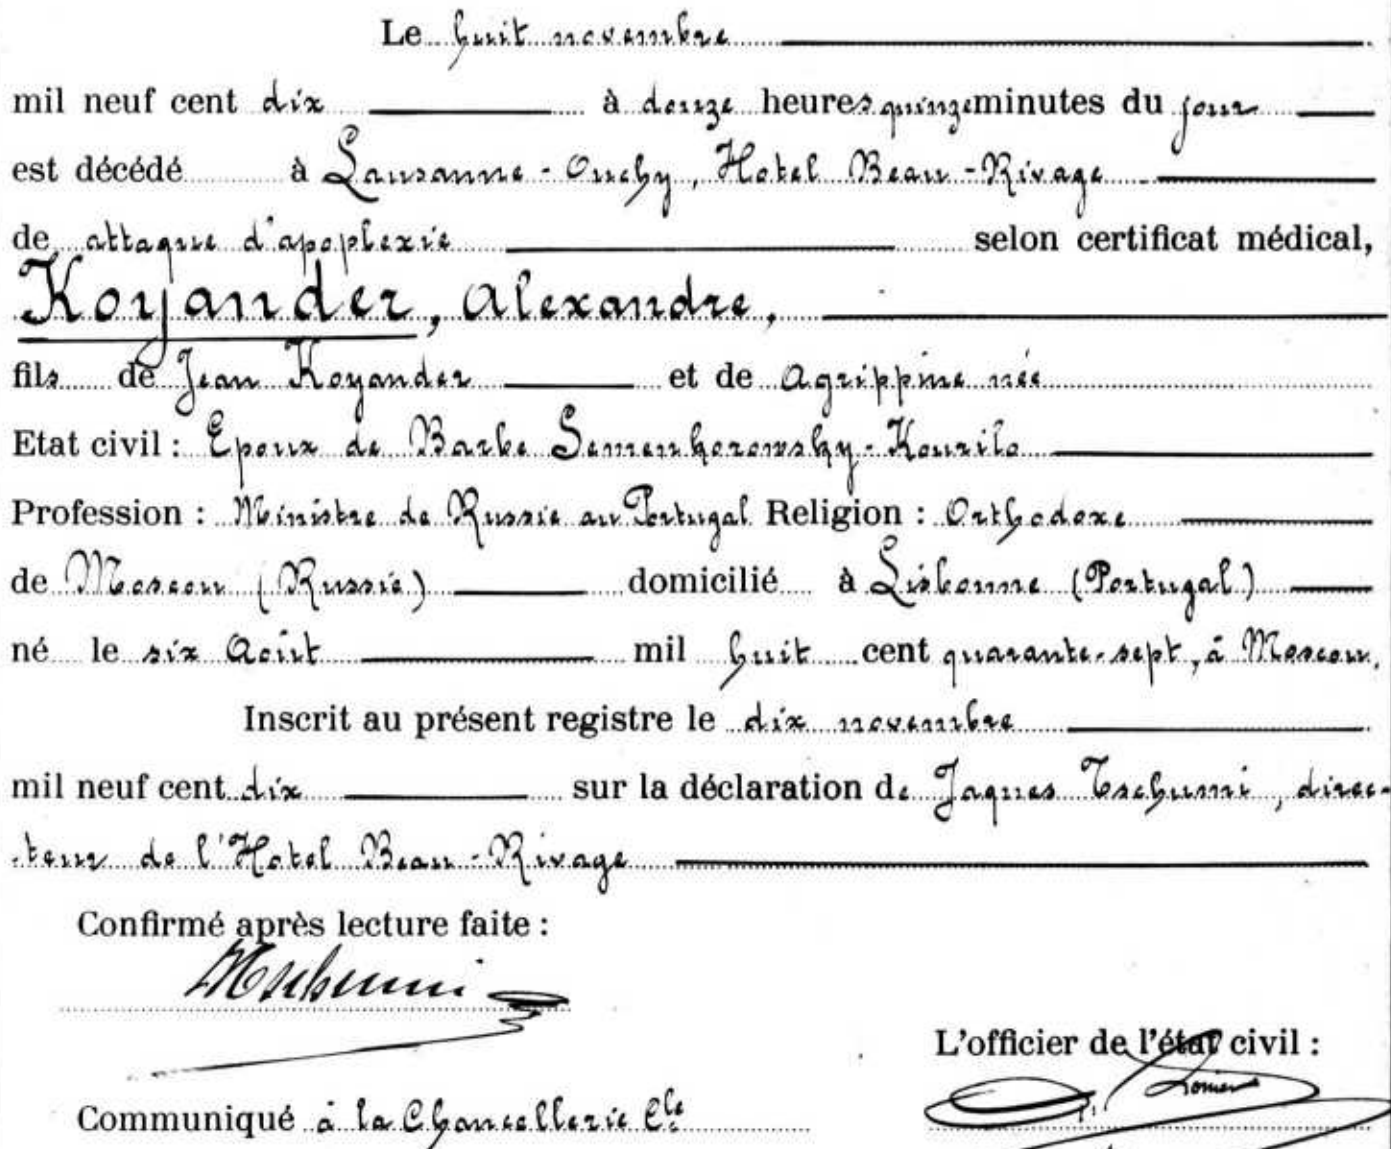 Le huit novembre
mil neuf cent dix à douze heures quinze minutes du jour
est décédé à Lausanne-Ouchy, Hotel Beau-Rivage
de attaque d'apoplexie selon certificat médical,
Koyander, Alexandre,
fils de Jean Koyander et de Agrippine née
Etat civil : Epoux de Barbe Semenkorowsky-Kourilo
Profession : Ministre de Russie au Portugal Religion : Orthodoxe
de Moscou (Russie) domicilié à Lisbonne (Portugal)
né le six Août mil huit cent quarante-sept, à Moscou,
Inscrit au présent registre le dix novembre
mil neuf cent dix sur la déclaration de Jaques Tschumi, direc-
-teur de l'Hotel Beau-Rivage
Confirmé après lecture faite :
JTschumi
L'officier de l'état civil :
Communiqué à la Chancellerie Cle